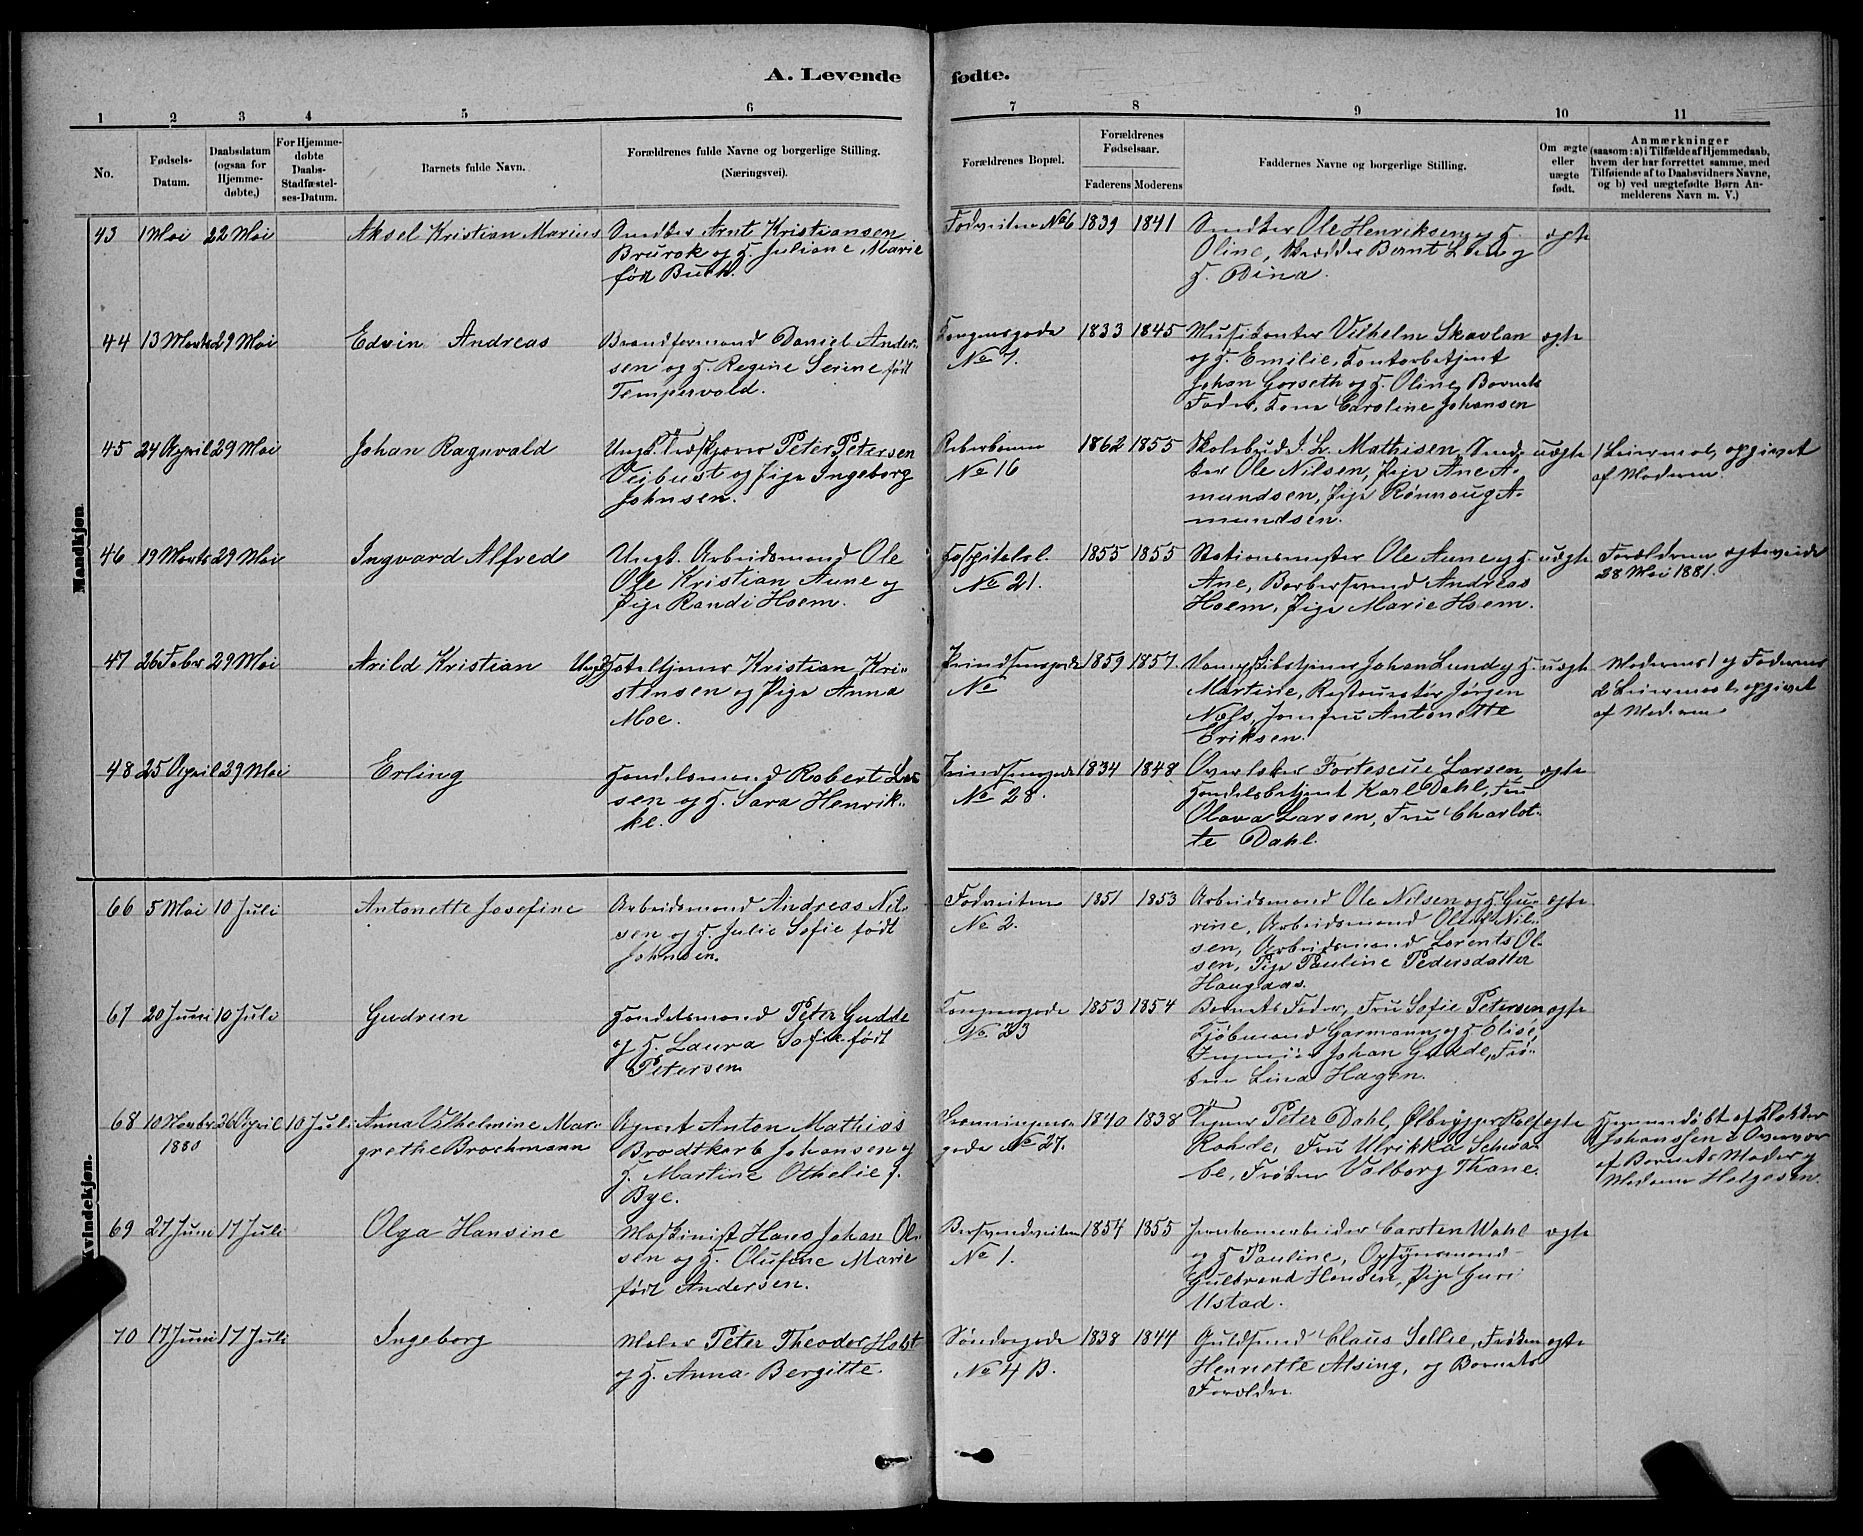 A. Levende fødte.
1 2 3 4 5 6 7 8 9 10 11
No.
Fødsels-
Datum.
Daabsdatum
(ogsaa for
Hjemme-
døbte,)
For Hjemme-
døbte
Daabs-
Stadfæstel-
ses-Datum.
Barnets fulde Navn.
Forældrenes fulde Navne og borgerlige Stilling.
(Næringsvei).
Forældrenes Bopæl.
Forældrenes
Fødselsaar.
Faderens Moderens
Faddernes Navne og borgerlige Stilling.
Om ægte
eller
uægte
født.
Anmærkninger
(saasom: a) i Tilfælde af Hjemmedaab,
hvem der har forrettet samme, med
Tilføiende af to Daabsvidners Navne,
og b) ved uægtefødte Børn An-
melderens Navn m. V.)
Mandkjøn.
43 1 Mai 22 Mai Aksel Kristian Marius
Snedker Arnt Kristiansen
Brurok og H. Juliane Marie
født Buck.
Fodveiten No 6 1839 1841
Snedker Ole Henriksen og H.
Oline, Skrædder Bernt Lien og
H. Dina.
ægte
44 13 Marts 29 Mai Edvin Andreas
Brandformand Daniel Ander-
sen og H. Regine Serine født
Tempervold.
Kongensgade
No 7.
1833 1845
Musikanter Vilhelm Skavlan
og H. Emilie, Kontorbetjent
Johan Gorseth og H. Oline, Barnets
Fader, Kone Caroline Johansen
ægte
45 24 April 29 Mai Johan Ragnvald
Ungk. Træskjærer Peter Petersen
Veibust og Pige Ingeborg
Johnsen.
Reberbanen
No 16
1862 1855
Skolebud J. L. Mathisen, Sned-
ker Ole Nilsen, Pige Ane A-
mundsen, Pige Rønnaug A-
mundsen.
uægte
1 Leiermaal, opgivet
af Moderen.
46 19 Marts 29 Mai Ingvard Alfred
Ungk. Arbeidsmand Ole
Ole Kristian Aune og
Pige Randi Hoem.
Hospitalsl.
No 21.
1855 1855
Stationsmester Ole Aune og H.
Ane, Barbersvend Andreas
Hoem, Pige Marie Hoem.
uægte
Forældrene ægteviede
28 Mai 1881.
47 26 Febr 29 Mai Arild Kristian
Ungk. Hoteltjener Kristian Kri-
stensen og Pige Anna
Moe.
Prindsensgade
No
1859 1857.
Johan Lund og H.
Martine, Restauratør Jørgen
Næss, Jomfru Antonette
Eriksen.
uægte
Moderens 1 og Faderens
2 Leiermaal, opgivet
af Moderen
48 25 April 29 Mai Erling
Handelsmand Robert Lar-
sen og H. Sara Henrik-
ke.
Prindsensgade
No 28.
1834 1848
Overlober Fortescue Larsen,
Handelsbetjent Karl Dahl, Fru
Olava Larsen, Fru Charlot-
te Dahl.
ægte
Kvindekjøn.
66 5 Mai 10 Juli Antonette Josefine
Arbeidsmand Andreas Nil-
sen og H. Julie Sofie født
Johnsen.
Fodveiten
No 2.
1851 1853
Arbeidsmand Ole Nilsen og H. Gu-
rine, Arbeidsmand Oluf Nil-
sen, Arbeidsmand Lorents Ol-
sen, Pige Pauline Pedersdatter
Haugaas.
ægte
67 20 Juni 10 Juli Gudrun
Handelsmand Peter Gudde
og H. Laura Sofie født
Petersen
Kongensgade
No 23
1853 1854
Barnets Fader, Fru Sofie Petersen
Kjøbmand Garmann og H. Elise,
Ingeniør Johan Gudde, Frø-
ken Lina Hagen.
ægte
68 10 Novbr 1880 26 April 10 Juli Anna Vilhelmine Mar-
grethe Brochmann
Agent Anton Mathias
Brodtkorb Johansen og
H. Martine Othelie f.
Bye.
Dronningens-
gade No 27.
1840 1838
Peter Dahl, Ølbrygger Rolf
Rohde, Fru Ulrikka Schwa-
be, Frøken Valborg Thane.
ægte
Hjemmedøbt af Klokker
Johanssen i Overvær
af Barnets Moder og
Madame Helgesen.
69 27 Juni 17 Juli Olga Hansine
Maskinist Hans Johan Ol-
sen og H. Olufine Marie
født Andersen.
Bersvendveiten
No 1.
1854 1855
Jernbanearbeider Carsten Wahl
og H. Pauline, Opsynsmand
Gulbrand Hansen, Pige Guri
Ustad.
ægte
70 17 Juni 17 Juli Ingeborg
Maler Peter Theodor Holst
og H. Anna Bergitte.
Søndregade
No 4 B.
1838 1844
Guldsmed Claus Sellie, Frøken
Henriette Alsing, og Barnets
Forældre.
ægte